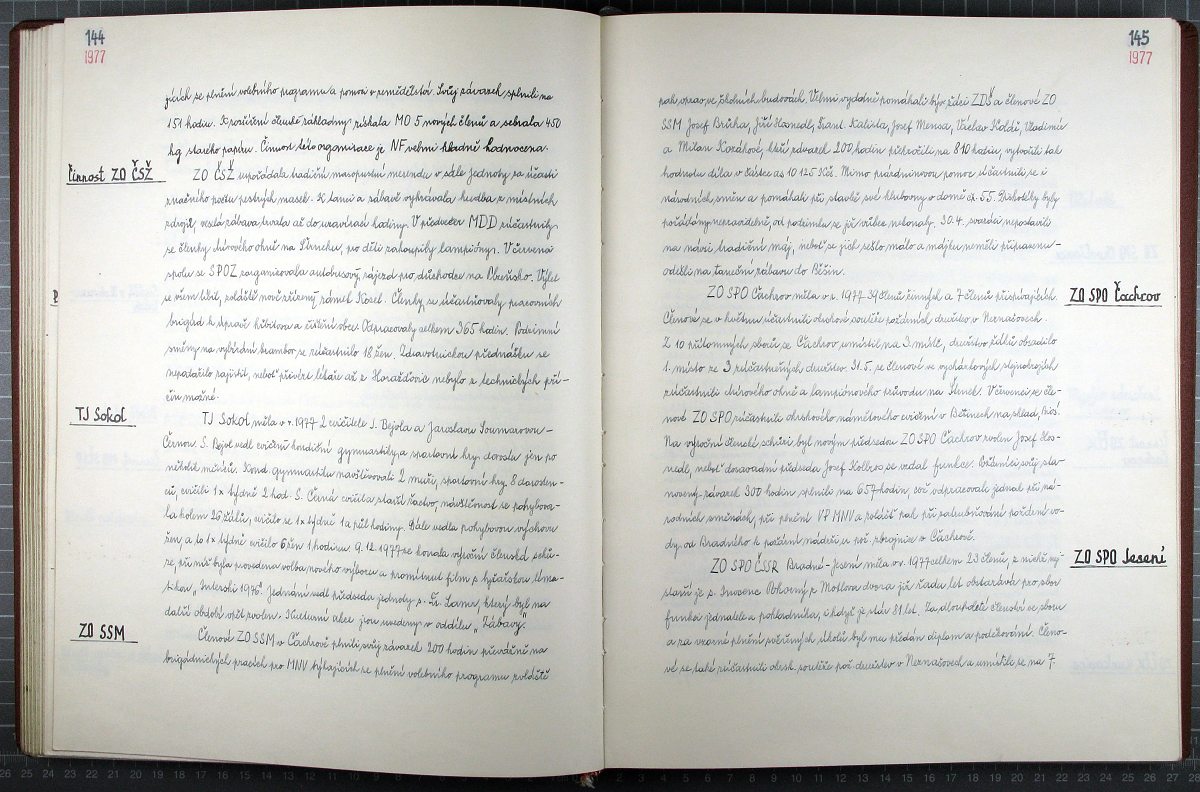 144
1977
jících se plnění volebního programu a pomoci v zemědělství. Svůj závazek splnili na
151 hodin. K rozšíření členské základny získala MO 5 nových členů a sebrala 450
kg starého papíru. Činnost této organizace je NF velmi kladně hodnocena.
Činnost ZO ČSŽ
ZO ČSŽ uspořádala tradiční masopustní merendu v sále Jednoty za účasti
značného počtu pestrých masek. K tanci a zábavě vyhrávala hudba z místních
zdrojů, veselá zábava trvala až do uzavírací hodiny. V předvečer MDD zúčastnily
se členky mírového ohně na Šternku pro děti zakoupily lampióny. V červenci
spolu se SPOZ zorganizovala autobusový zájezd pro důchodce na Plzeňsko. Výlet
se všem líbil, zvláště nově zřízený zámek Kozel. Členky se zúčastňovaly pracovních
brigád k úpravě hřbitova a čištění obce. Odpracovaly celkem 365 hodin. Podzimní
směny na vybírání brambor se zúčastnilo 18 žen. Zdravotnickou přednášku se
nepodařilo zajistit, neboť přivézt lékaře až z Horažďovic nebylo z technických pří-
čin možné.
TJ Sokol
TJ Sokol měla v r. 1977 2 cvičitele J. Bejvla a Jaroslavu Soumarovou-
Černou. S. Bejvl vedl cvičení kondiční gymnastiky a sportovní hry dorostu jen po
několik měsíců. Kond. gymnastiku navštěvovali 2 muži, sportovní hry 8 dorosten-
ců, cvičili 1x týdně 2 hod. S. Černá cvičila starší žactvo, návštěvnost se pohybova-
la kolem 25 žáků, cvičilo se 1x týdně 1 a půl hodiny. Dále vedla pohybovou výchovu
žen, a to 1x týdně cvičilo 6 žen 1 hodinu. 9.12.1977 se konala výroční členská schů-
ze, při níž byla provedena volba nového výboru a promítnut film s lyžařskou tema-
tikou „Interski 1975". Jednání vedl předseda jednoty s. Fr. Lamr, který byl na
další období opět zvolen. Kulturní akce jsou uvedeny v oddílu „Zábavy".
ZO SSM
Členové ZO SSM v Čachrově plnili svůj závazek 200 hodin převážně na
brigádnických pracích pro MNV týkajících se plnění volebního programu zvláště
145
1977
pak oprav ve školních budovách. Velmi vydatně pomáhali býv. žáci ZDŠ a členové ZO
SSM Josef Brůha, Jiří Hanedl, Frant. Kalista, Josef Mensa, Václav Kolář, Vladimír
a Milan Kozákové, kteří závazek 200 hodin překročili na 810 hodin, vytvořili tak
hodnotu díla v částce as 10 125 Kčs. Mimo prázdninovou pomoc zúčastnili se i
národních směn a pomáhali při stavbě své klubovny v domě čp. 55. Diskotéky byly
pořádány nepravidelně, od podzimku se již vůbec nekonaly. 30.4. svazáci nepostavili
na návsi tradiční máj, neboť se jich sešlo málo a májku neměli připravenu-
odešli na taneční zábavu do Běšin.
ZO SPO Čachrov
ZO SPO Čachrov měla v r. 1977 39 členů činných a 7 členů přispívajících.
Členové se v květnu zúčastnili okrskové soutěže požárních družstev v Nemažovech.
Z 10 přítomných sborů se Čachrov umístil na 3. místě, družstvo žáků obsadilo
1. místo ze 3 zúčastněných družstev. 31.5. se členové ve vycházkových stejnokrojích
zúčastnili mírového ohně a lampionového průvodu na Štenek. V červenci se čle-
nové ZO SPO zúčastnili okrskového námětového cvičení v Běšinech na sklad
Na výroční členské schůzi byl novým předsedou ZO SPO Čachrov zvolen Josef Hos-
nedl, neboť dosavadní předseda Josef se vzdal funkce. Občanští svůj sta-
novený závazek 300 hodin splnilo na 657 hodin, což odpracovali jednak při ná-
rodních směnách, při plnění VP MNV a zvláště pak při zabudovávání požární vo-
dy od Bradného k požární nádrži u pož. zbrojnice v Čachrově.
ZO SPO Jesení
ZO SPO ČSSR Bradné-Jesení měla v r. 1977 celkem 23 členů, z nichž nej-
starší je s. Inocenc Pokorný z Motlova dvora již řadu let obstarává pro sbor
funkce jednatele a pokladníka, i když je stár 81 let. Za dlouholeté členství ve sboru
a za vzorné plnění svěřených úkolů byl mu předán diplom a poděkování. Členo-
vé se také zúčastnili okrsk. soutěže pož. družstev v Nemažovech a umístili se na 7.